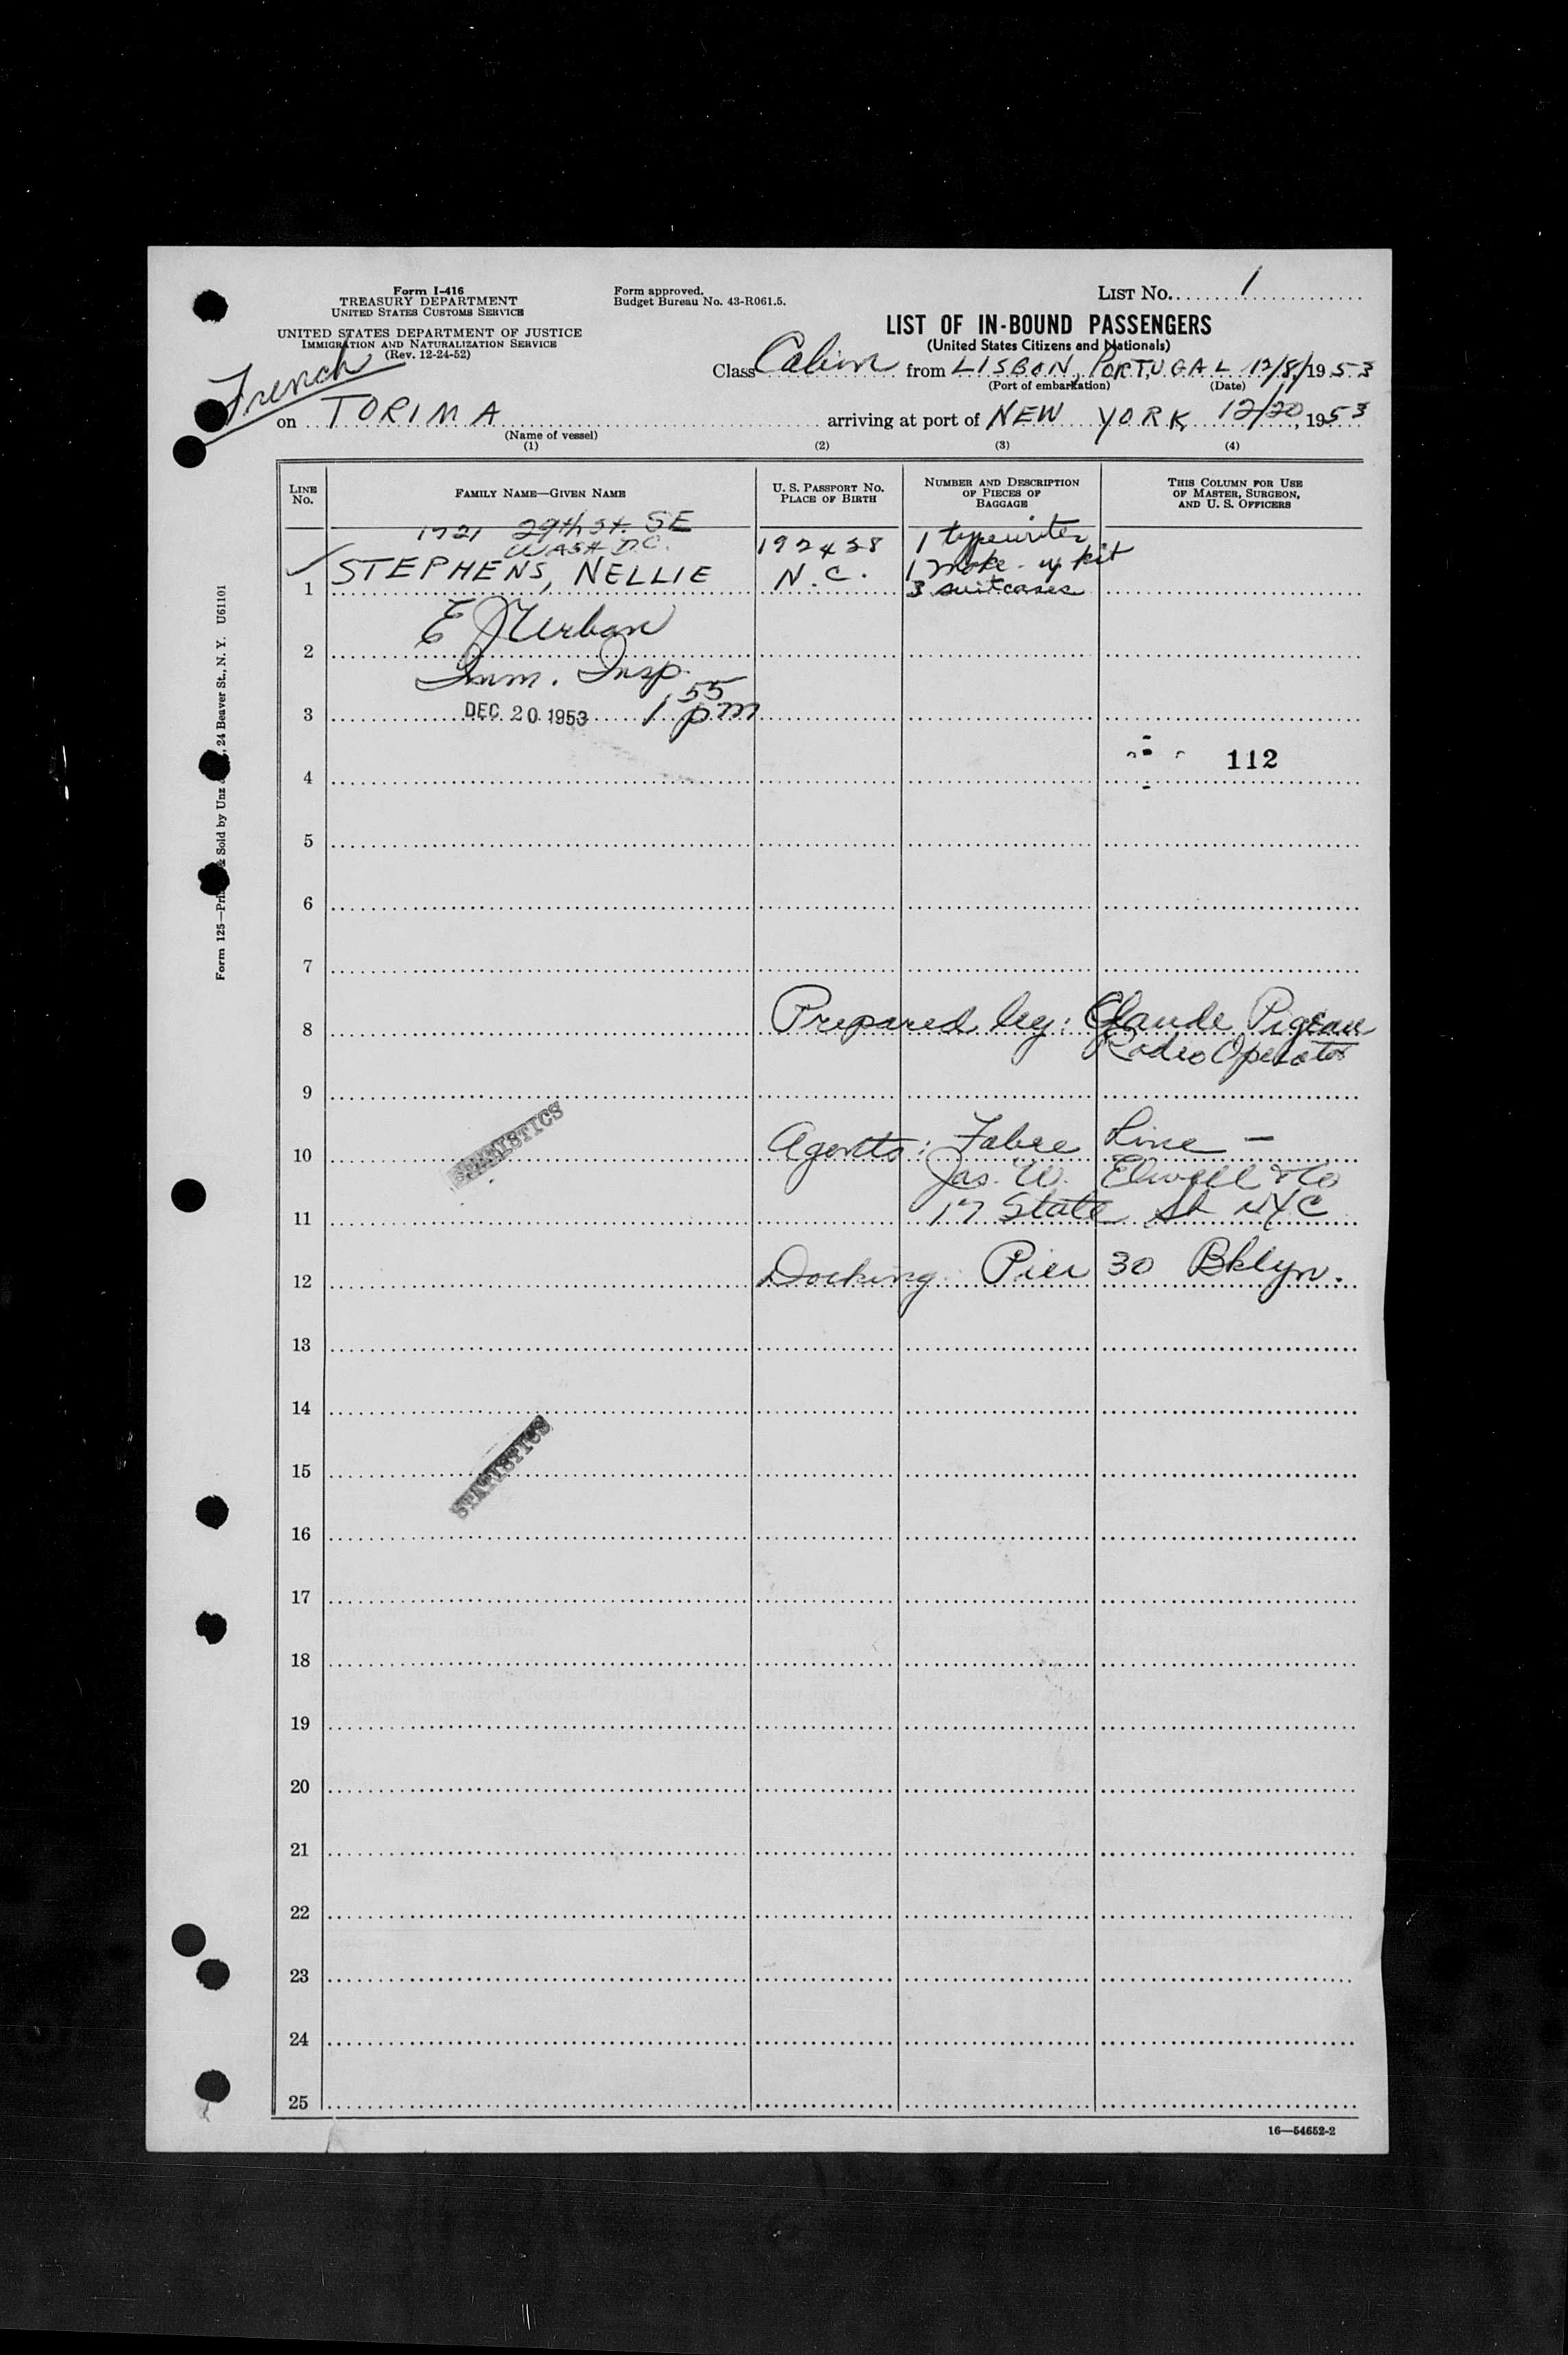 Form I-416
TREASURY DEPARTMENT
UNITED STATES CUSTOMS SERVICE
UNITED STATES DEPARTMENT OF JUSTICE
IMMIGRATION AND NATURALIZATION SERVICE
(Rev. 12-24-52)
Form approved.
Budget Bureau No. 43-R061.5.
LIST No. 1
LIST OF IN-BOUND PASSENGERS
(United States Citizens and Nationals)
French
Class Cabin from LISBON, PORTUGAL 12/8/, 1953
(Port of embarkation) (Date)
on TORIMA arriving at port of NEW YORK 12/20, 1953
(Name of vessel)
(1) (2) (3) (4)
LINE No.
FAMILY NAME—GIVEN NAME
U. S. PASSPORT NO. PLACE OF BIRTH
NUMBER AND DESCRIPTION OF PIECES OF BAGGAGE
THIS COLUMN FOR USE OF MASTER, SURGEON, AND U. S. OFFICERS
1721 29th St. SE
WASH D.C. 192428 1 typewriter
1 kit
1 STEPHENS, NELLIE N.C. 3 suitcases
E J Urban
2
Imm. Insp.
3 DEC 20 1953 1 55 pm
112
4
5
6
7
8 Prepared by: Claude Pigeau
Radio Operator
9
STATISTICS
10 Agents: Fabre Line —
Jas. W. Elwell & Co
11 17 State St NYC
12 Docking Pier 30 Bklyn.
13
14
STATISTICS
15
16
17
18
19
20
21
22
23
24
25
16—54652-2
Form 125—Sold by Unz 24 Beaver St., N. Y. U61101